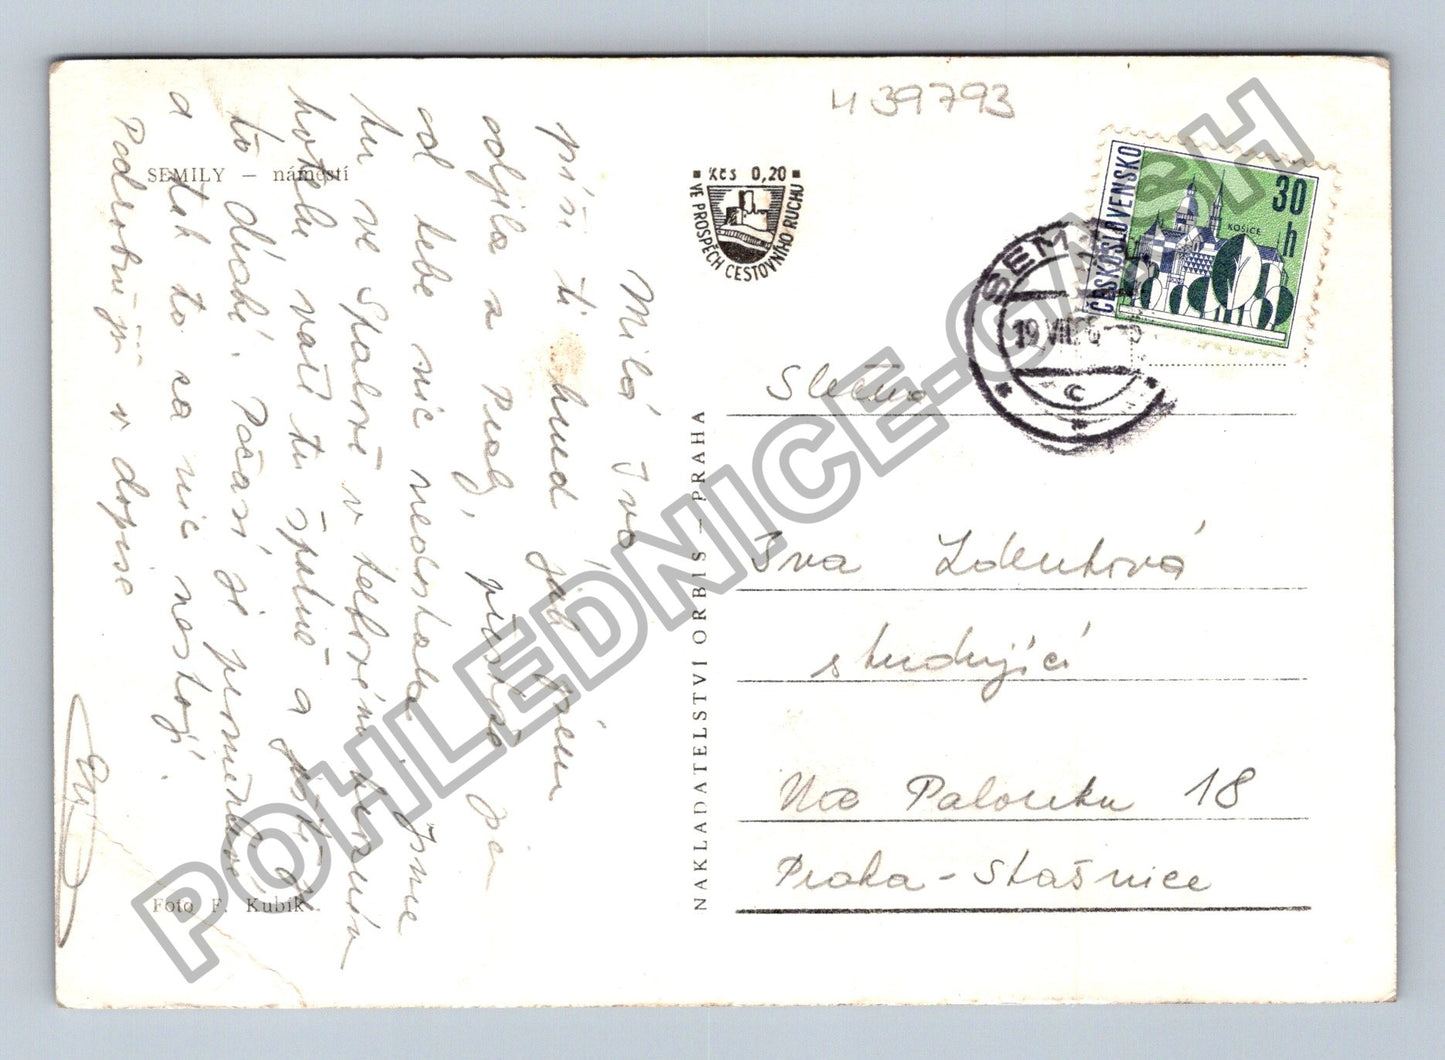 H39793
SEMILY – náměstí
Kčs 0,20
VE PROSPĚCH CESTOVNÍHO RUCHU
ČESKOSLOVENSKO
30
h
KOŠICE
SEM
19 VII
C
Milá Ivo
píši ti hned jak jsem
odjela z Prahy, přestože
od tebe nic nedostala. Jsme
tu ve Spálově v
hotelu vaří tu špatně a
to důchod. Počasí je proměnlivé
a tak to za nic nestojí.
Podrobněji v dopise
Foto F. Kubík
NAKLADATELSTVÍ ORBIS – PRAHA
Slečna
Iva Zdeňková
studující
Na Palouku 18
Praha – Strašnice
POHLEDNICE-CASH